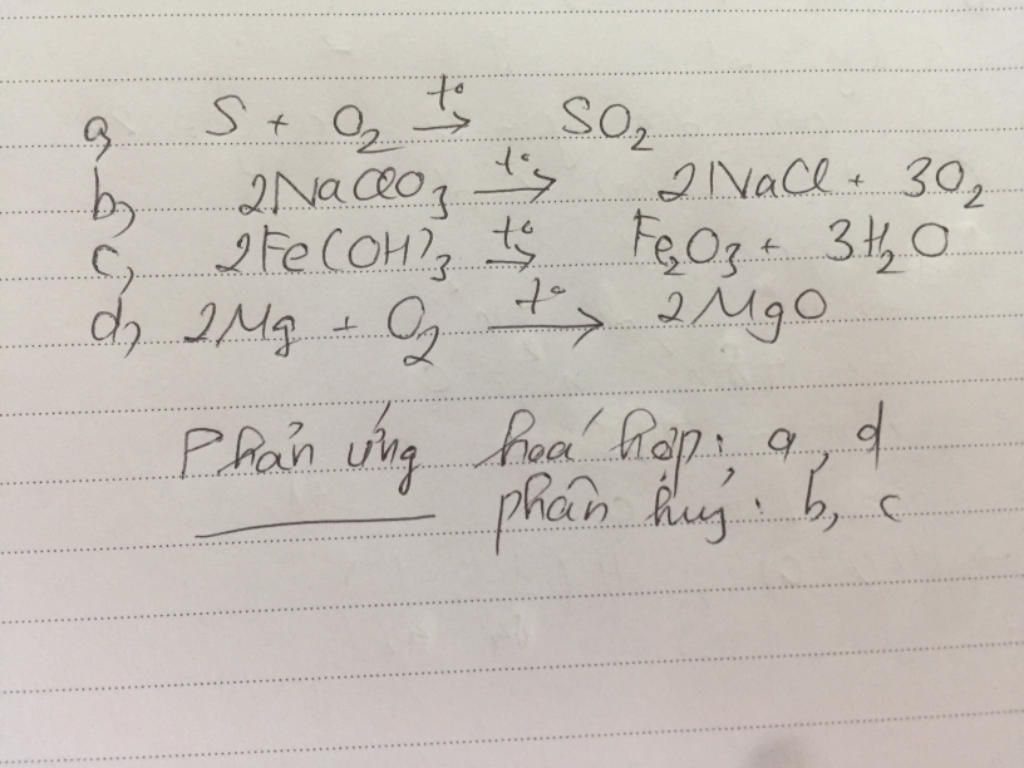 a, S + O₂ —t°→ SO₂
b, 2NaClO₃ —t°→ 2NaCl + 3O₂
c, 2Fe(OH)₃ —t°→ Fe₂O₃ + 3H₂O
d, 2Mg + O₂ —t°→ 2MgO
Phản ứng hoá hợp: a, d
phân huỷ: b, c